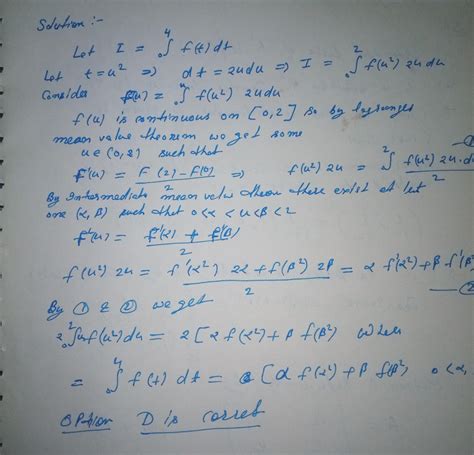 Solution :-
Let I = ₀∫⁴ f(t) dt
Let t = u² ⇒ dt = 2udu ⇒ I = ₀∫² f(u²) 2u du
Consider F(u) = ₀∫ᵘ f(u²) 2udu
f(u) is continuous on [0,2] so by
mean value theorem we get some
u ∈ (0,2) such that
F'(u) = F(2) - F(0) / 2 ⇒ f(u²) 2u = ₀∫² f(u²) 2u.du / 2 —①
By Intermediate mean value there exist at
one (α, β) such that 0<α<u<β<2
f'(u) = f'(α) + f'(β) / 2
f(u²) 2u = f'(α²) 2α + f(β²) 2β / 2 = α f'(α²) + β f'(β²) —②
By ① & ② we get
2 ₀∫² u f(u²) du = 2 [α f(α²) + β f(β²)
= ₀∫⁴ f(t) dt = [α f(α²) + β f(β²) 0<α,
Option D is